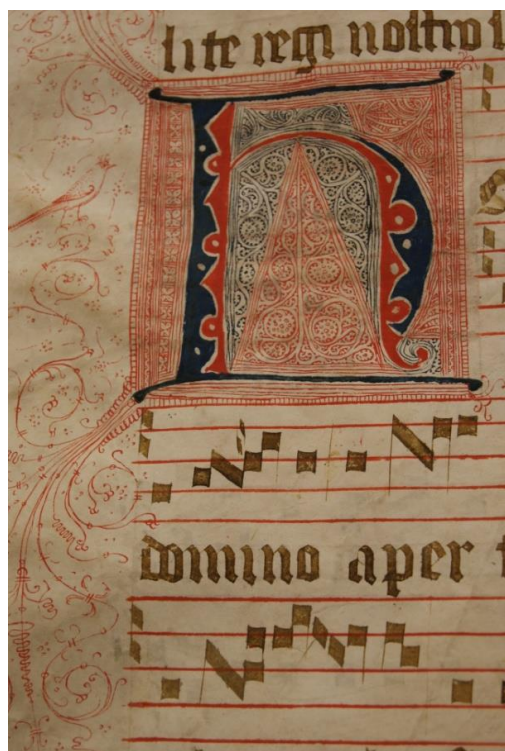 lite regi nostro
H
domino aper